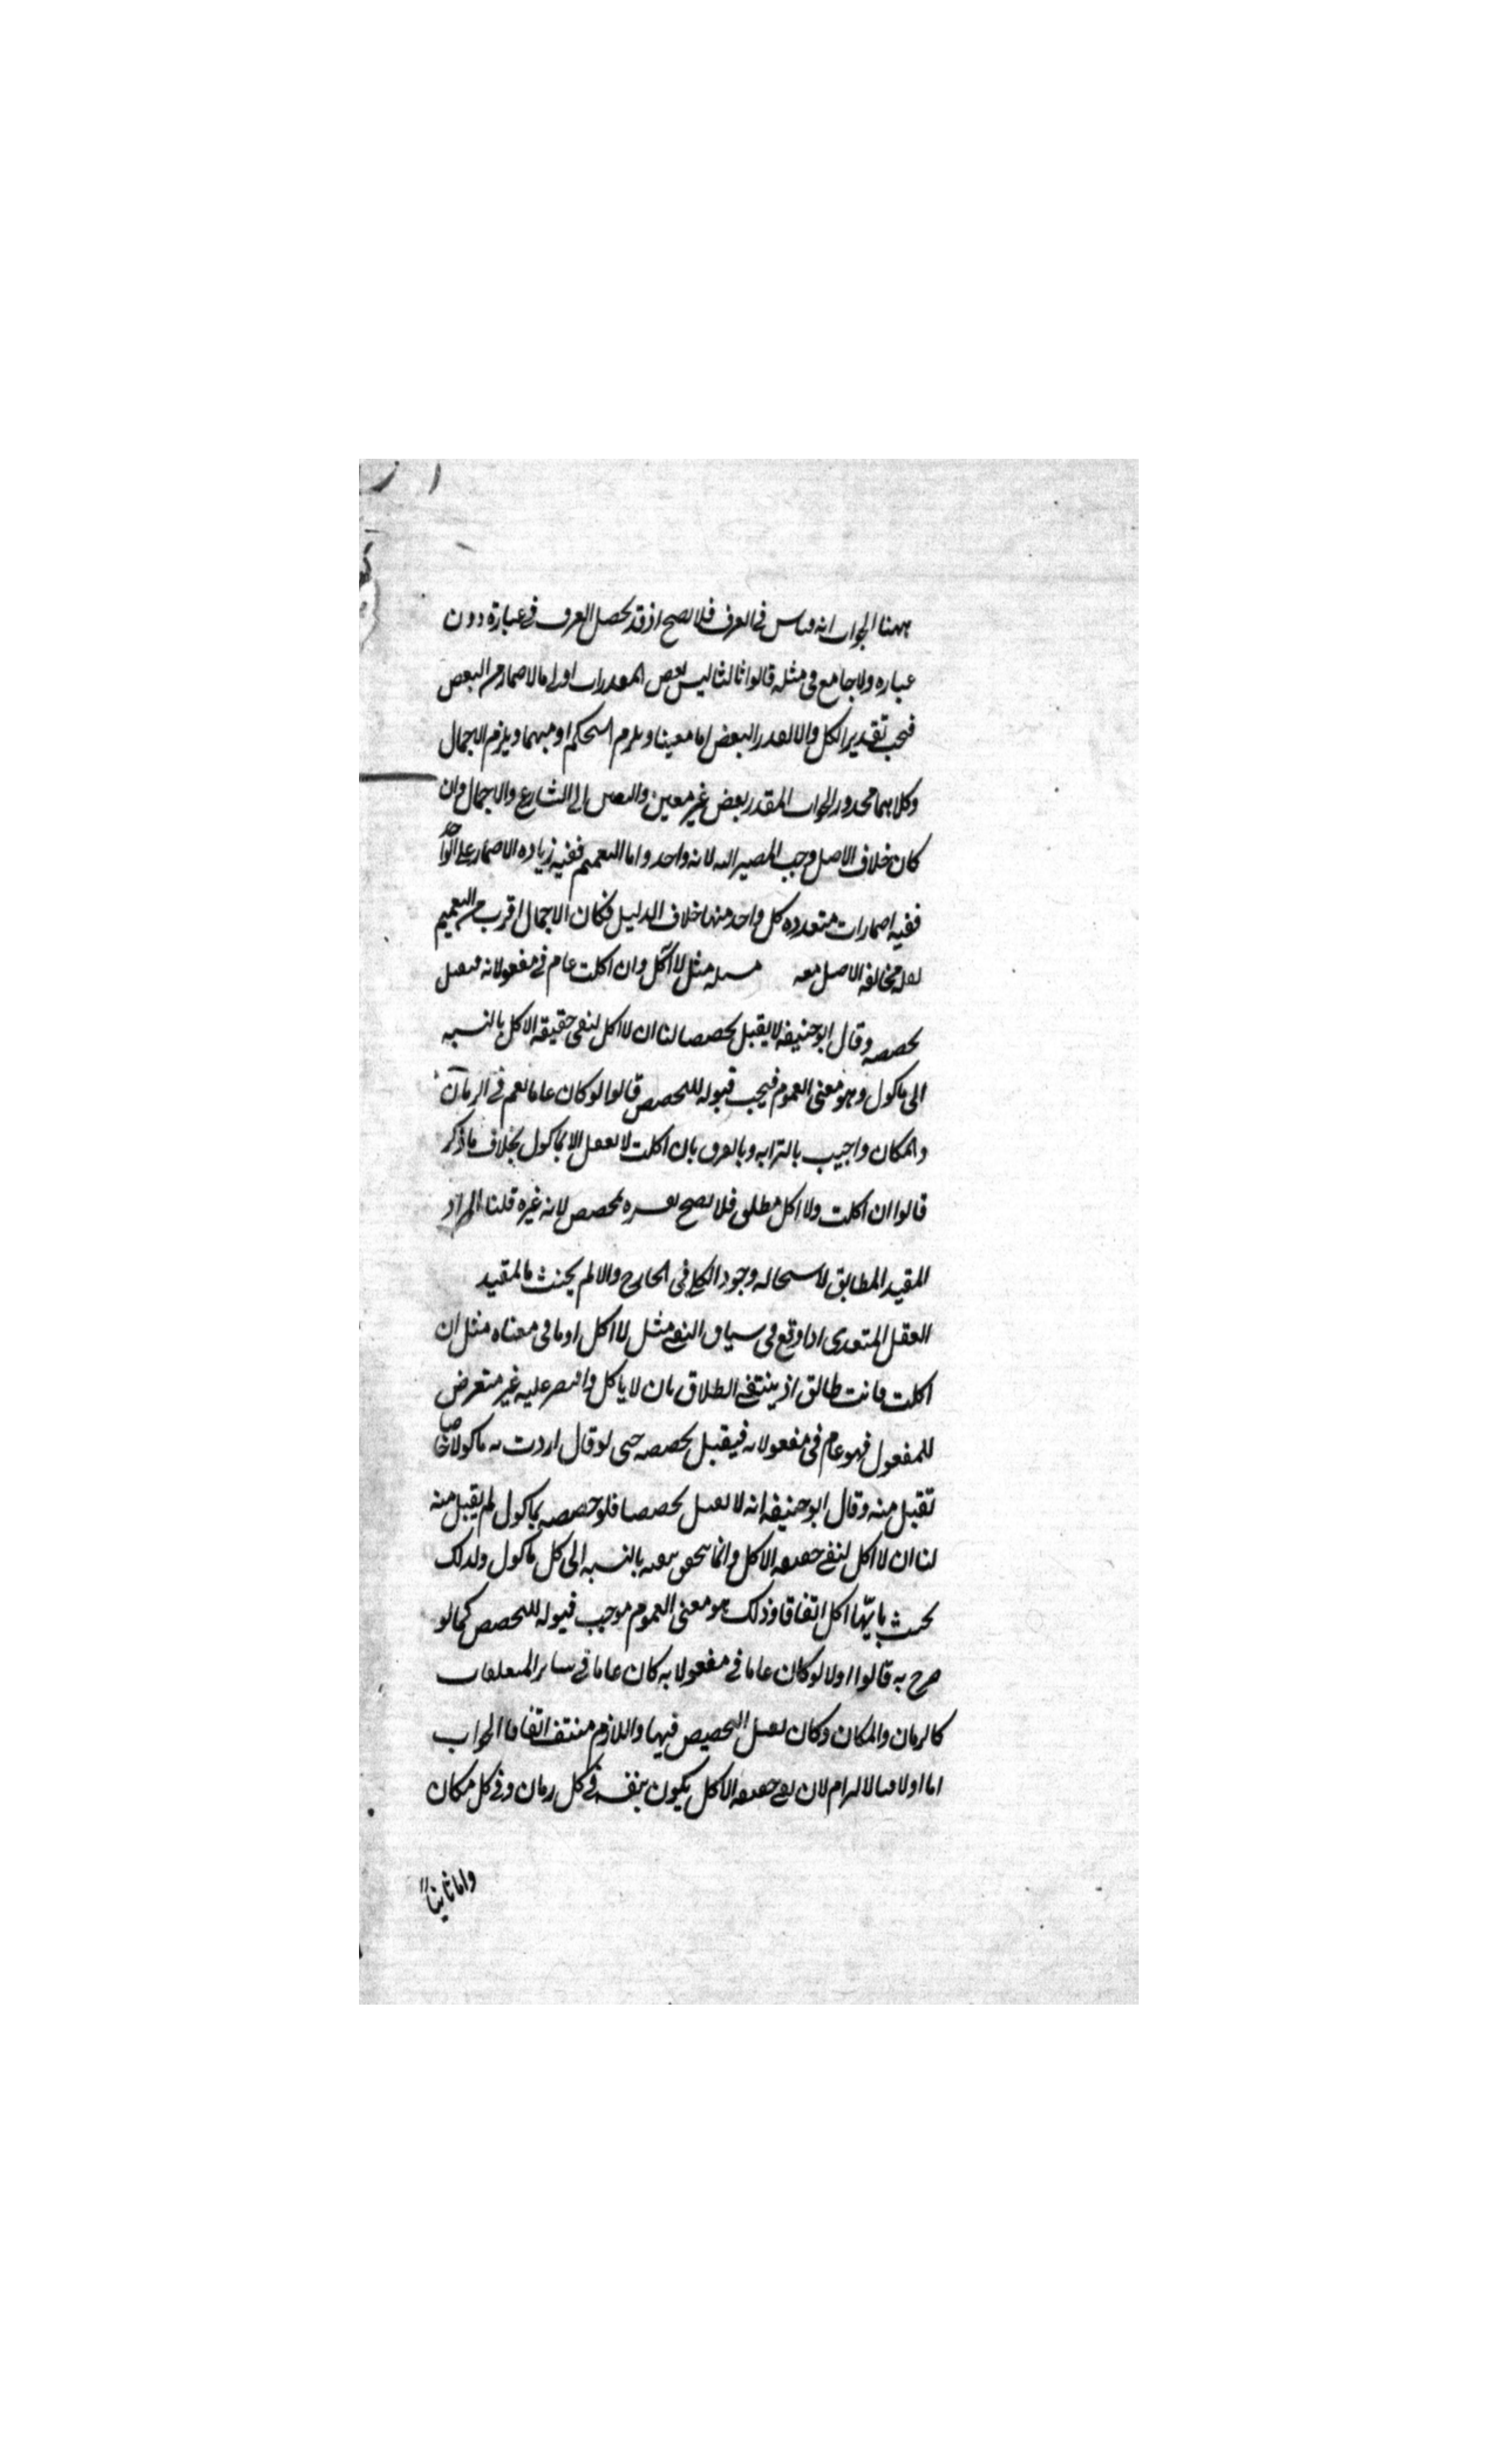 ههنا الجواب انه قياس فى العرف فلا يصح اذ قد يحصل العرف فى عبارة دون
عباره ولا جامع فى مثله قالوا ثالثا ليس بعض المقدرات اولى بالاضمار من البعض
فيجب تقدير الكل والا لقدر البعض اما معينا ويلزم التحكم او مبهما ويلزم الاجمال
وكلاهما محذور الجواب المقدر بعض غير معين والتعيين الى الشارع والاجمال وان
كان خلاف الاصل وجب المصير اليه لانه واحد واما التعميم ففيه زياده الاضمار على الواحد
ففيه اضمارات متعدده كل واحد منها خلاف الدليل فكان الاجمال اقرب من التعميم
لقله مخالفه الاصل معه مسله مثل لا آكل وان اكلت عام فى مفعولاته فيقبل
تخصيصه وقال ابو حنيفه لا يقبل تخصيصا لنا ان لا اكل لنفى حقيقه الاكل بالنسبه
الى ماكول وهو معنى العموم فيجب قبوله للتخصيص قالوا لو كان عاما لعم فى الزمان
والمكان واجيب بالتزامه وبالفرق بان اكلت لا يعقل الا بماكول بخلاف ما ذكر
قالوا ان اكلت ولا اكل مطلق فلا يصح تفسيره بمخصص لانه غيره قلنا المراد
المقيد المطابق لاستحاله وجود الكلى فى الخارج والا لم يحنث بالمقيد
الفعل المتعدى اذا وقع فى سياق النفى مثل لا اكل او ما فى معناه مثل ان
اكلت فانت طالق اذ ينتفى الطلاق بان لا ياكل واقتصر عليه غير متعرض
للمفعول فهو عام فى مفعولاته فيقبل تخصيصه حتى لو قال اردت به ماكولا خاصا
تقبل منه وقال ابو حنيفه انه لا يقبل تخصيصا فلو خصصه بماكول لم يقبل منه
لنا ان لا اكل لنفى حقيقه الاكل وانما يتحقق نفيه بالنسبه الى كل ماكول ولذلك
يحنث بايّها اكل اتفاقا وذلك هو معنى العموم موجب قبوله للتخصيص كما لو
صرح به قالوا اولا لو كان عاما فى مفعولاته كان عاما فى ساير المتعلقات
كالزمان والمكان وكان يقبل التخصيص فيها واللازم منتف اتفاقا الجواب
اما اولا فبالالتزام لان نفى حقيقه الاكل يكون بنفيه فى كل زمان وفى كل مكان
واما ثانياً